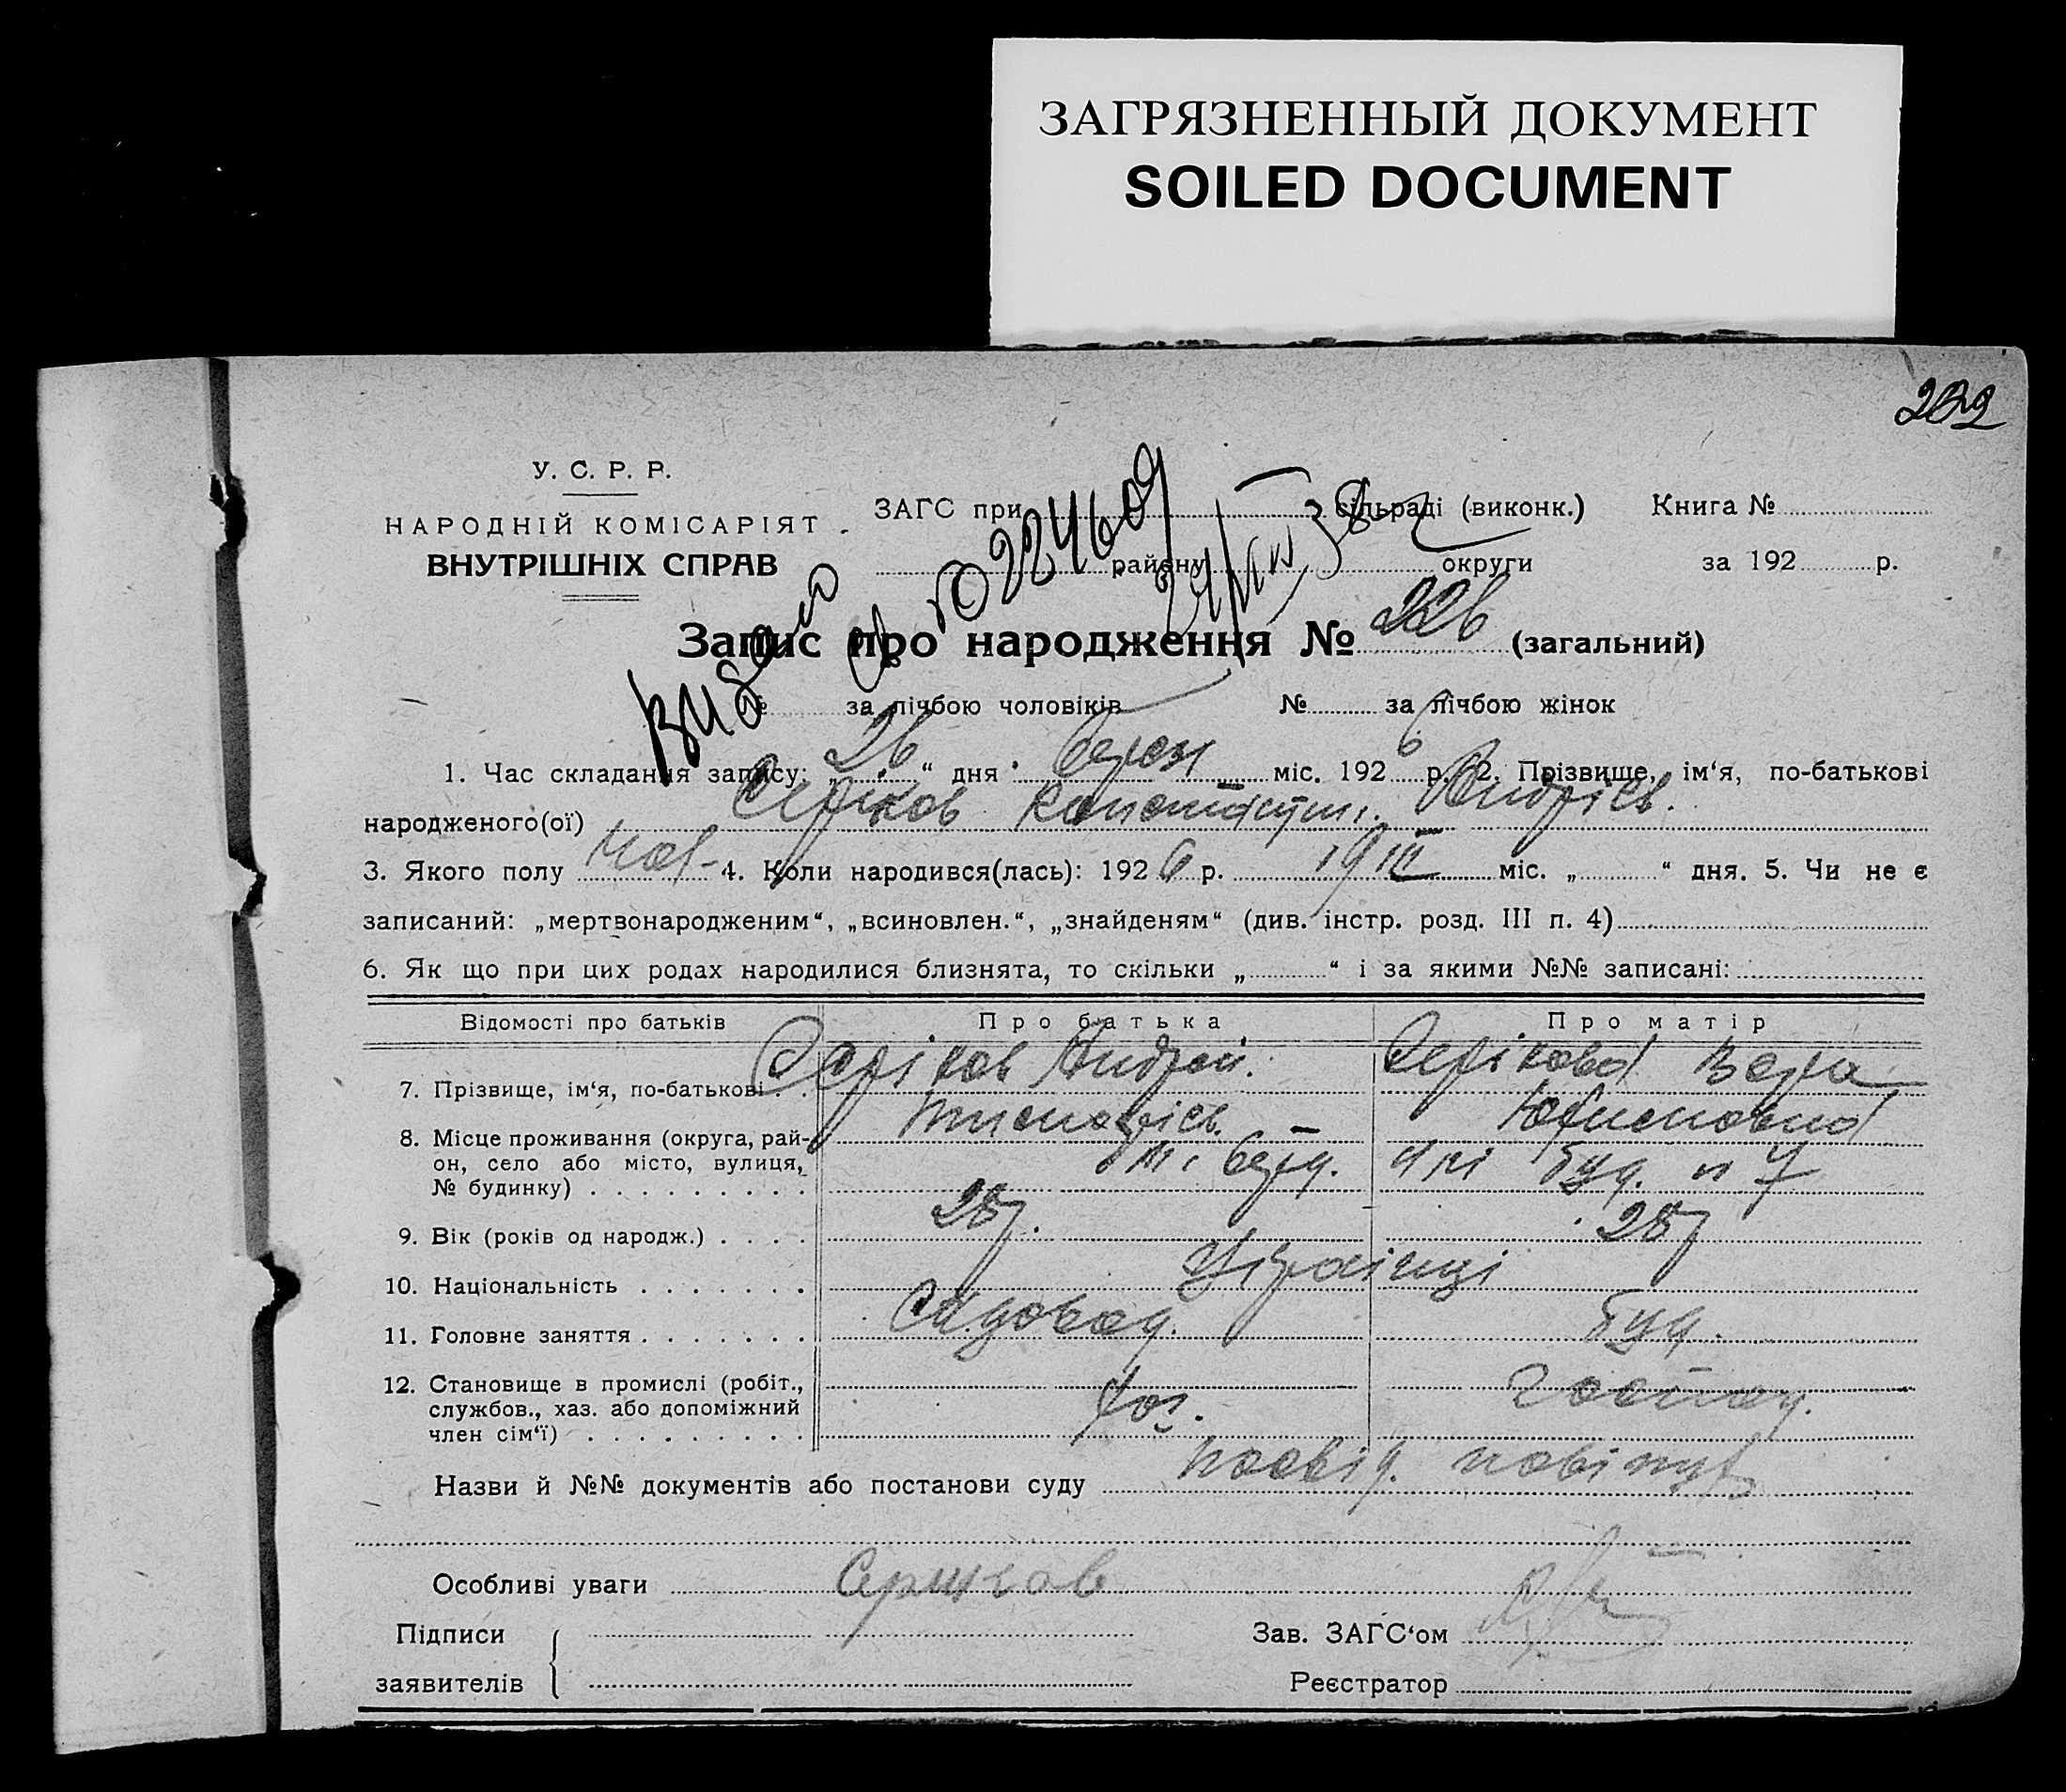 ЗАГРЯЗНЕННЫЙ ДОКУМЕНТ
SOILED DOCUMENT
У. С. Р. Р.
НАРОДНІЙ КОМІСАРІЯТ
ВНУТРІШНІХ СПРАВ
ЗАГС при сільраді (виконк.) Книга №
району округи за 192 р.
Запис про народження № 226 (загальний)
№ за лічбою чоловіків № за лічбою жінок
1. Час складання запису: „ 26 “ дня березн міс. 192 6 р. 2. Прізвище, ім‘я, по-батькові
народженого(ої) Серіков Константин Андрієв.
3. Якого полу чол- 4. Коли народився(лась): 192 6 р. 19 III міс. „ “ дня. 5. Чи не є
записаний: „мертвонародженим“, „всиновлен.“, „знайденям“ (див. інстр. розд. III п. 4)
6. Як що при цих родах народилися близнята, то скільки „ “ і за якими №№ записані:
Відомості про батьків Про батька Про матір
7. Прізвище, ім‘я, по-батькові Серіков Андрей. Серікова Вера
8. Місце проживання (округа, рай-
он, село або місто, вулиця,
№ будинку) буд. № 7
9. Вік (років од народж.) 28р. 28р
10. Національність Українці
11. Головне заняття Садовод. буд.
12. Становище в промислі (робіт.,
службов., хаз. або допоміжний
член сім‘ї) хоз.
Назви й №№ документів або постанови суду посвід.
Особливі уваги
Підписи
заявителів
Зав. ЗАГС‘ом
Реєстратор